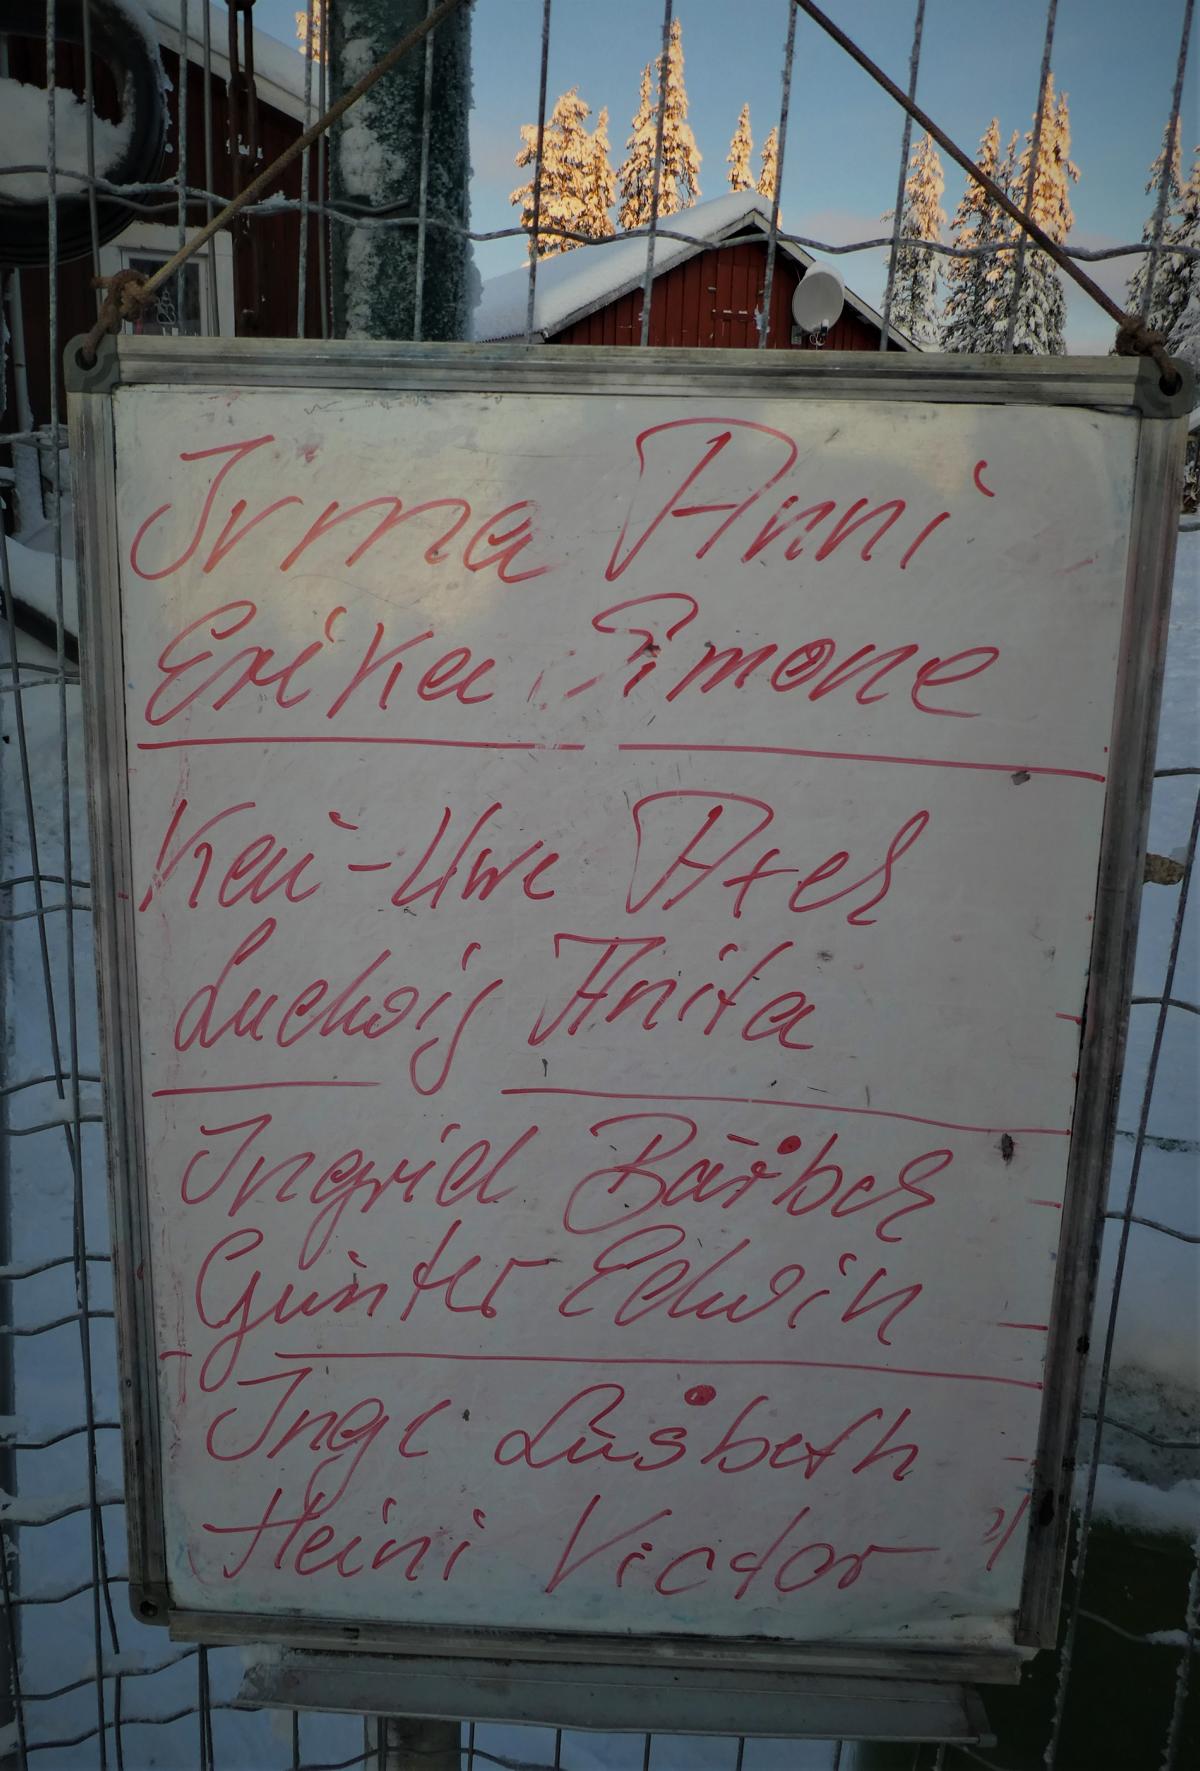 Irma Anni
Erika Simone
Kai-Uwe Axel
Ludwig Anita
Ingrid Bärbel
Günter Edwin
Inge Lisbeth
Heini Victor